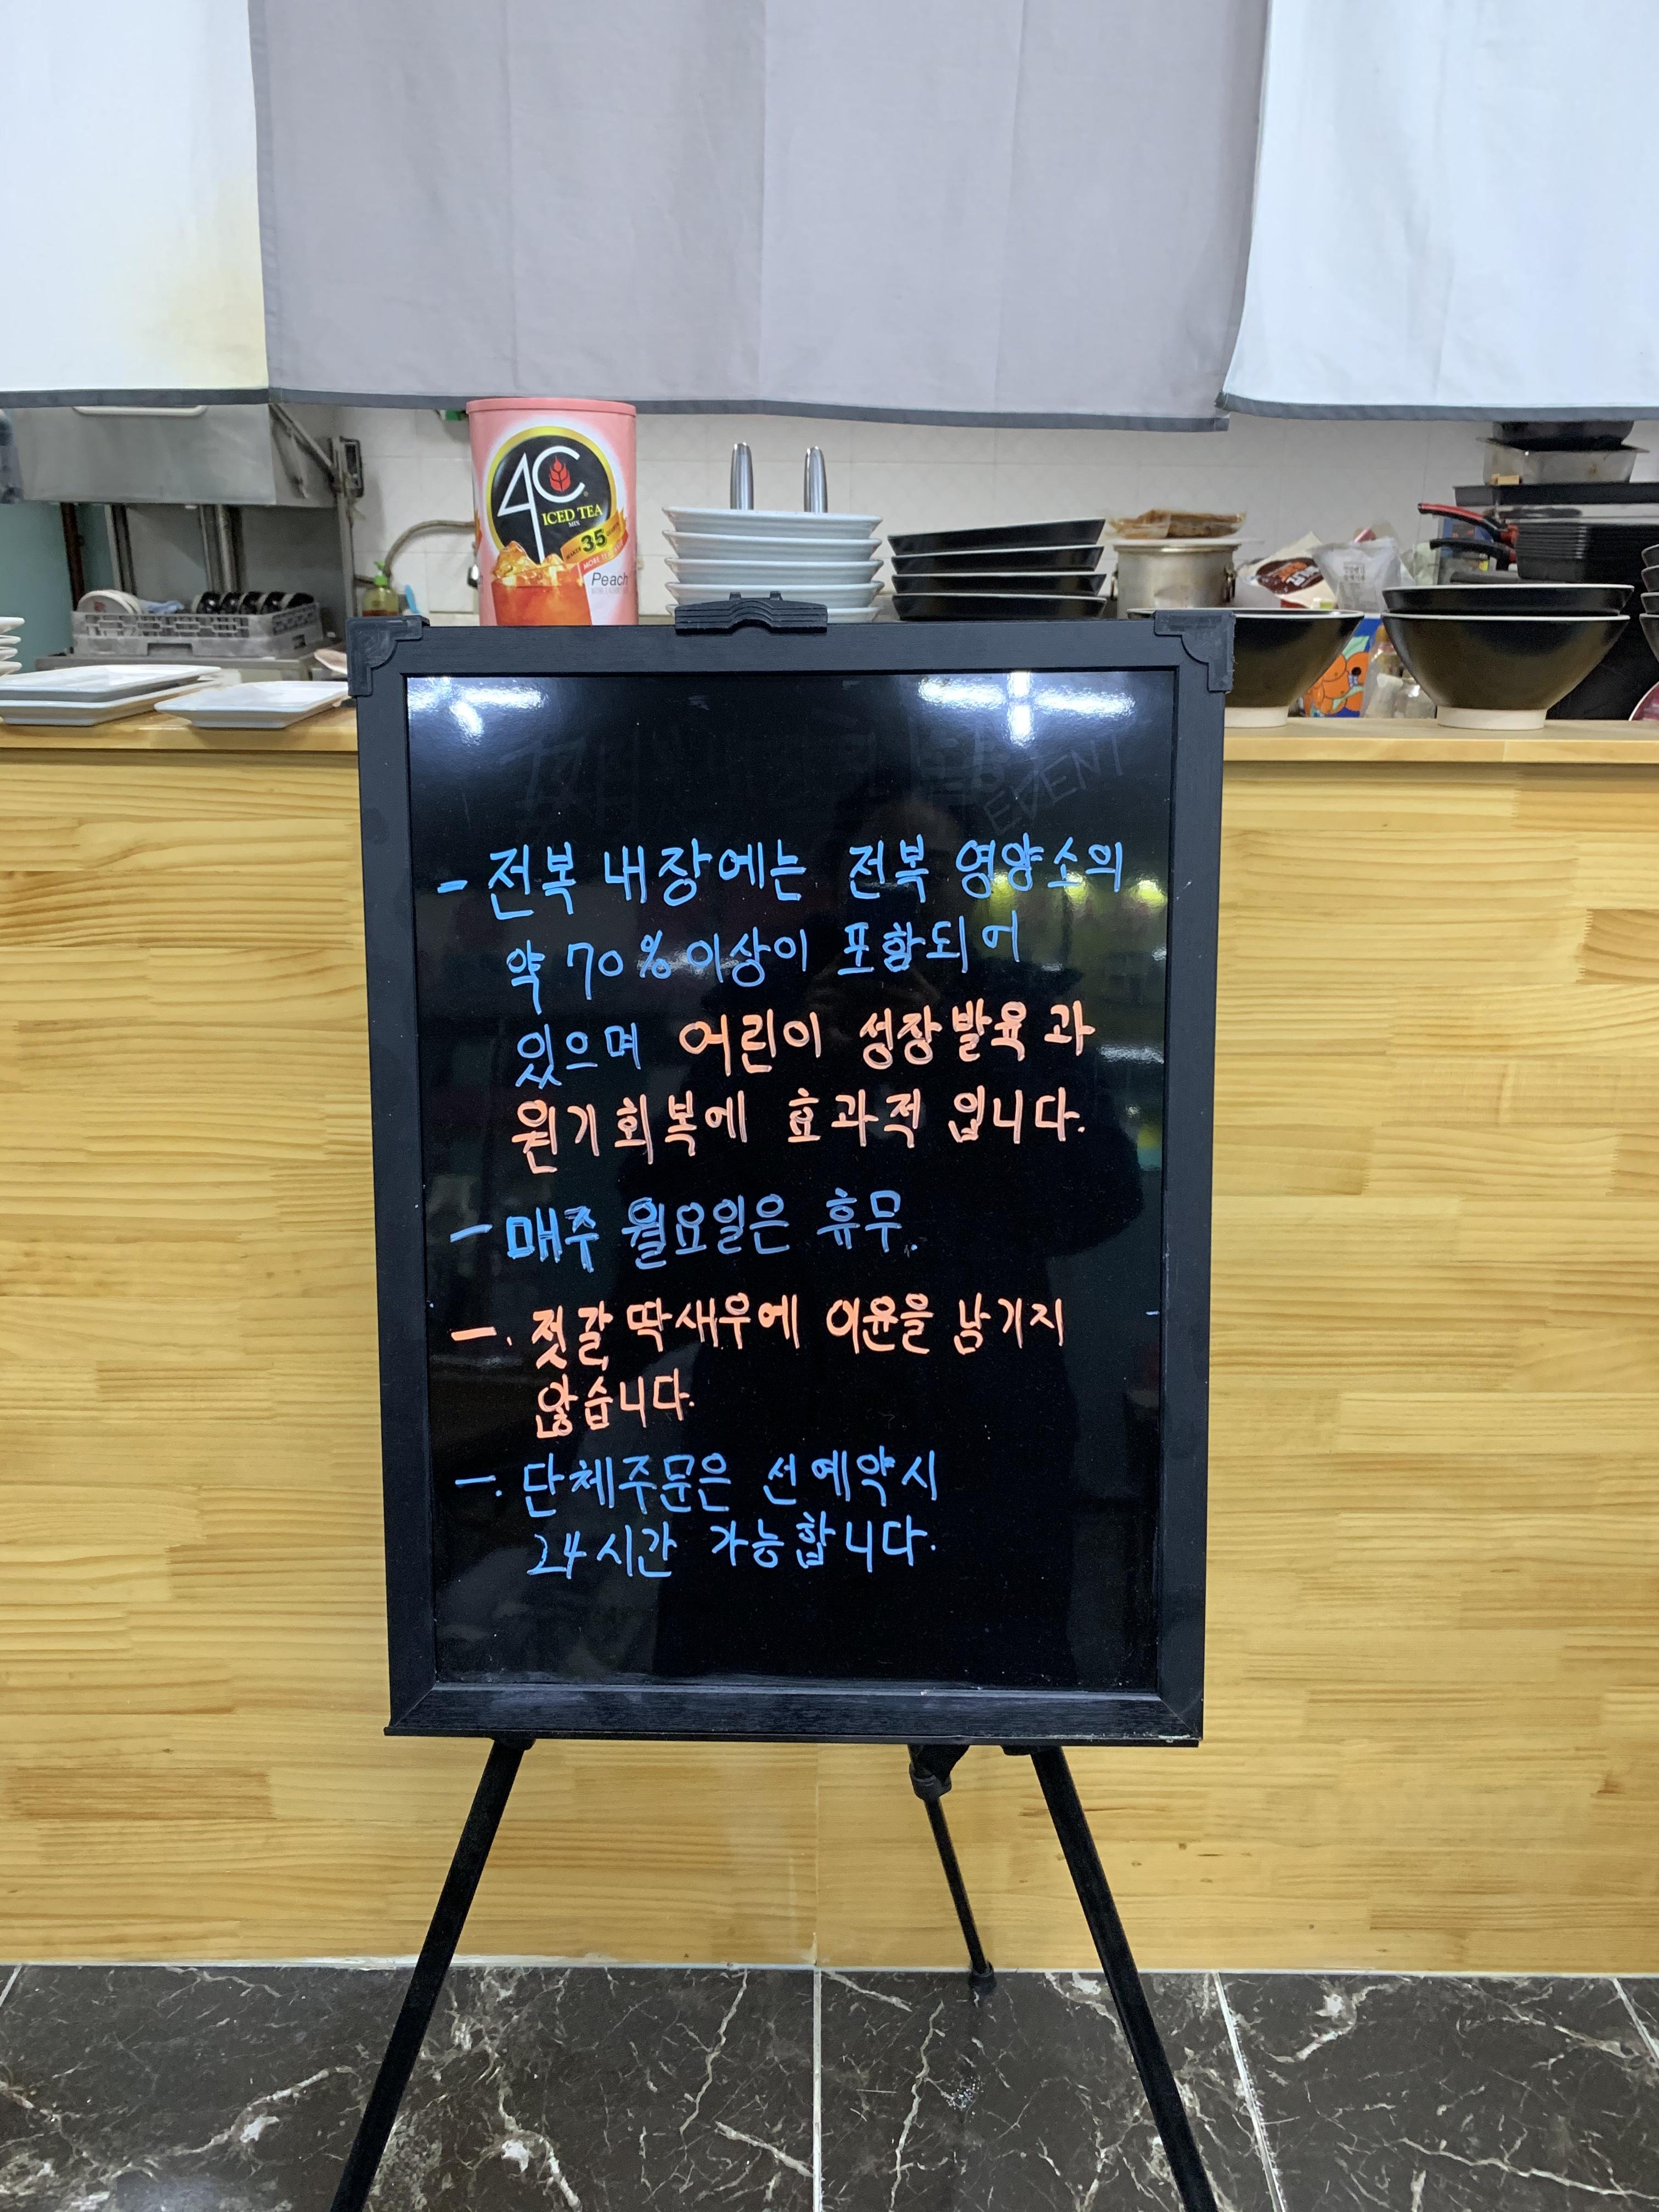 4C
ICED TEA
MIX
MAKES 35
Peach
EVENT
- 전복 내장에는 전복 영양소의
약 70% 이상이 포함되어
있으며 어린이 성장발육과
원기회복에 효과적 입니다.
- 매주 월요일은 휴무.
-. 젓갈, 딱새우에 이윤을 남기지
않습니다.
-. 단체주문은 선예약시
24시간 가능합니다.